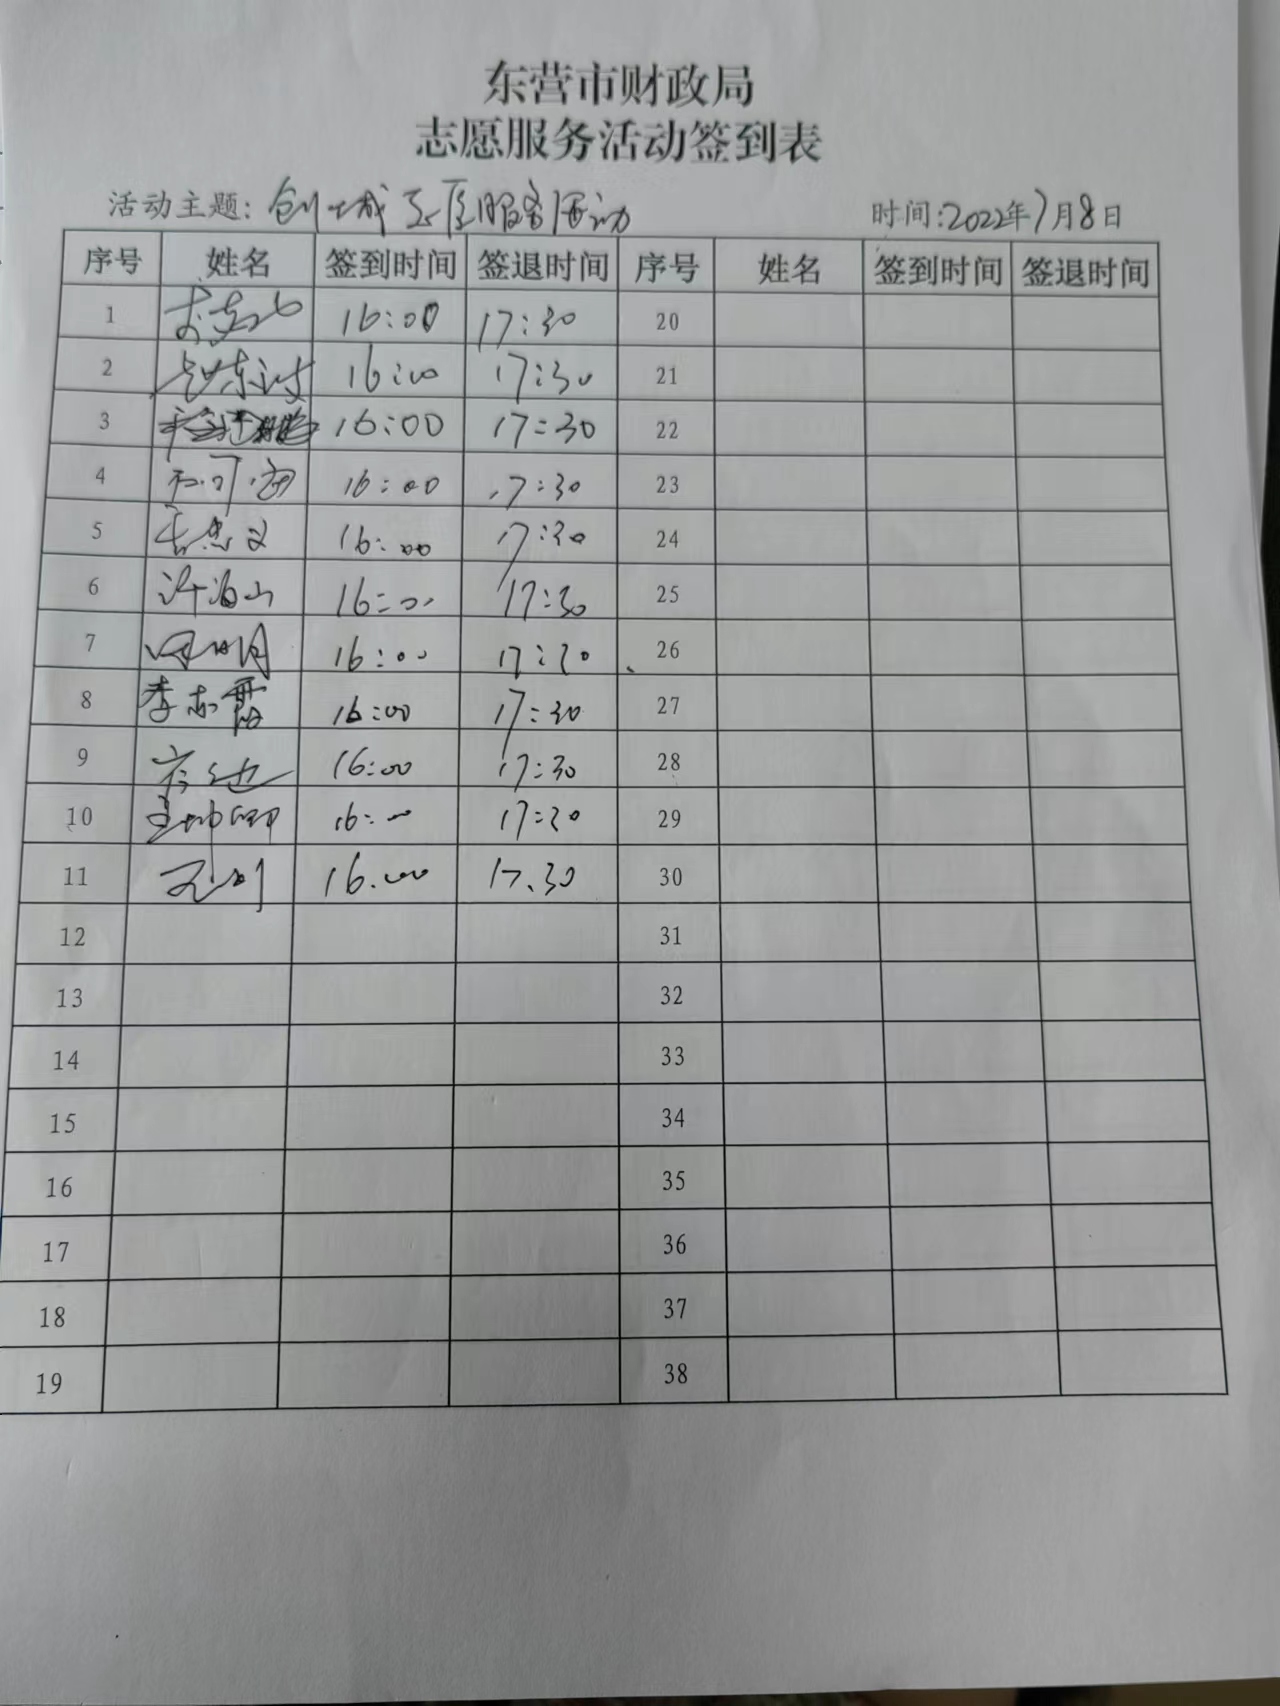 东营市财政局
志愿服务活动签到表
活动主题：创城志愿服务活动 时间：2022年7月8日
序号 姓名 签到时间 签退时间 序号 姓名 签到时间 签退时间
1 16:00 17:30 20
2 16:00 17:30 21
3 16:00 17:30 22
4 16:00 17:30 23
5 16:00 17:30 24
6 许海山 16:00 17:30 25
7 16:00 17:30 26
8 李志霞 16:00 17:30 27
9 16:00 17:30 28
10 16:00 17:30 29
11 16.00 17.30 30
12 31
13 32
14 33
15 34
16 35
17 36
18 37
19 38